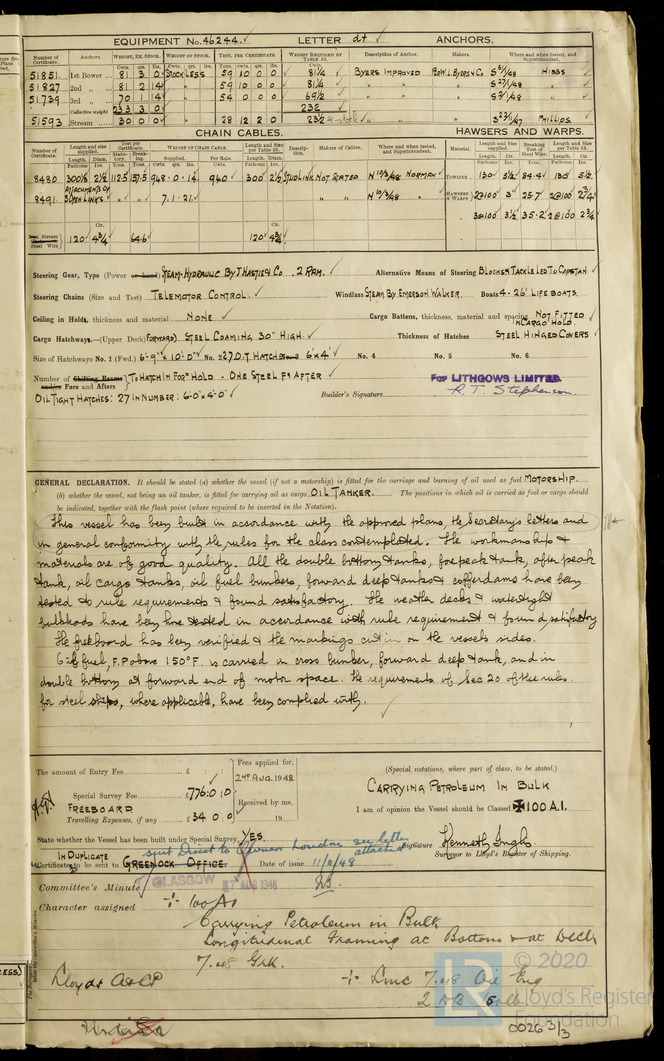 EQUIPMENT No. 46244. LETTER dt ANCHORS.
Number of Certificate. Anchors. WEIGHT, EX. STOCK. WEIGHT OF STOCK. TEST, PER CERTIFICATE. WEIGHT REQUIRED BY TABLE 53. Description of Anchor. Makers. Where and when tested, and Superintendent.
Cwts. qrs. lbs. Cwts. qrs. lbs. Tons. Cwts. qrs. lbs. Cwts.
51851 1st Bower 81 3 0 STOCKLESS 59 10 0 0 81¼ BYERS IMPROVED HIBBS
51827 2nd 81 2 14 59 10 0 0 81¼
51739 3rd 70 1 14 54 0 0 0 69½
Collective weight 233 3 0 232
51593 Stream 30 0 0 28 12 2 0 23½ PHILLIPS
CHAIN CABLES. HAWSERS AND WARPS.
Number of Certificate. Length and size supplied. Test per Certificate. WEIGHT OF CHAIN CABLE. Length and size per Table 53. Description. Makers of Cables. Where and when tested, and Superintendent. Material. Length and size supplied. Breaking Test of Steel Wire. Length and size per Table 53.
Length. Diam. Statutory. Breaking. Supplied. Per Rule. Length. Diam. Length. Cir. Length. Cir.
8480 300½ 2½ 112.5 157.5 948.0.14 940 300 2½ STUDLINK NOT STATED N 10/3/48 NORMAN TOWLINE 130 5½ 84.4 130 5½
ATTACHMENTS OF
8491 3 OPEN LINKS 7.1.21 N 10/3/48 HAWSERS & WARPS 2@100 3 25.7 2@100 2¾
3@100 3½ 35.2 2@100 2¾
Stream Steel Wire 120 4¾ 64.6 120 4¾
Steering Gear, Type (Power or hand) STEAM-HYDRAULIC BY J HASTIE & CO. 2 RAM. Alternative Means of Steering BLOCKS & TACKLE LED TO CAPSTAN
Steering Chains (Size and Test) TELEMOTOR CONTROL. Windlass STEAM BY EMERSON WALKER. Boats 4-26' LIFE BOATS.
Ceiling in Holds, thickness and material NONE Cargo Battens, thickness, material and spacing NOT FITTED IN CARGO HOLD.
Cargo Hatchways.—(Upper Deck) (FORWARD) STEEL COAMING 30" HIGH. Thickness of Hatches STEEL HINGED COVERS
Size of Hatchways No. 1 (Fwd.) 6'-9" x 10'-0" No. 2 27 O.T. HATCH 6' x 4' No. 4 No. 5 No. 6
Number of Shifting Beams and/or Fore and Afters TO HATCH IN FORD HOLD - ONE STEEL F & AFTER
FOR LITHGOWS LIMITED.
OIL TIGHT HATCHES: 27 IN NUMBER: 6'-0" x 4'-0" Builder's Signature R. T. Stephenson.
GENERAL DECLARATION. It should be stated (a) whether the vessel (if not a motorship) is fitted for the carriage and burning of oil used as fuel MOTORSHIP.
(b) whether the vessel, not being an oil tanker, is fitted for carrying oil as cargo OIL TANKER. The positions in which oil is carried as fuel or cargo should
be indicated, together with the flash point (where required to be inserted in the Notation).
This vessel has been built in accordance with the approved plans, the Secretary's letters and
in general conformity with the rules for the class contemplated. The workmanship &
materials are of good quality. All the double bottom tanks, fore peak tank, after peak
tank, oil cargo tanks, oil fuel bunkers, forward deep tanks & cofferdams have been
tested to rule requirements & found satisfactory. The weather decks & watertight
bulkheads have been hose tested in accordance with rule requirement & found satisfactory
The freeboard has been verified & the markings cut in on the vessels sides.
Oil fuel, F.P. above 150°F. is carried in cross bunker, forward deep tank, and in
double bottom at forward end of motor space. The requirements of Sec 20 of the rules
for steel ships, where applicable, have been complied with.
The amount of Entry Fee £ : : Fees applied for, 2ND AUG. 1948. (Special notations, where part of class, to be stated.)
Special Survey Fee £776:0:0 CARRYING PETROLEUM IN BULK
FREEBOARD Received by me, I am of opinion the Vessel should be Classed ✠100 A.1.
Travelling Expenses, if any £34 0 0 19
State whether the Vessel has been built under Special Survey YES. Signature Kenneth
Surveyor to Lloyd's Register of Shipping.
IN DUPLICATE sent Direct to Owners London see letter attached
Certificate to be sent to GREENOCK OFFICE. Date of issue 11/11/48
Committee's Minute GLASGOW 17 AUG 1948
Character assigned 100 A1
Carrying Petroleum in Bulk
Longitudinal Framing at Bottom & at Deck
7.48 Grk.
Lloyds A & CP LMC 7.48 Oil Eng
2 DB
© 2020
Lloyd's Register
Foundation
0026 3/3